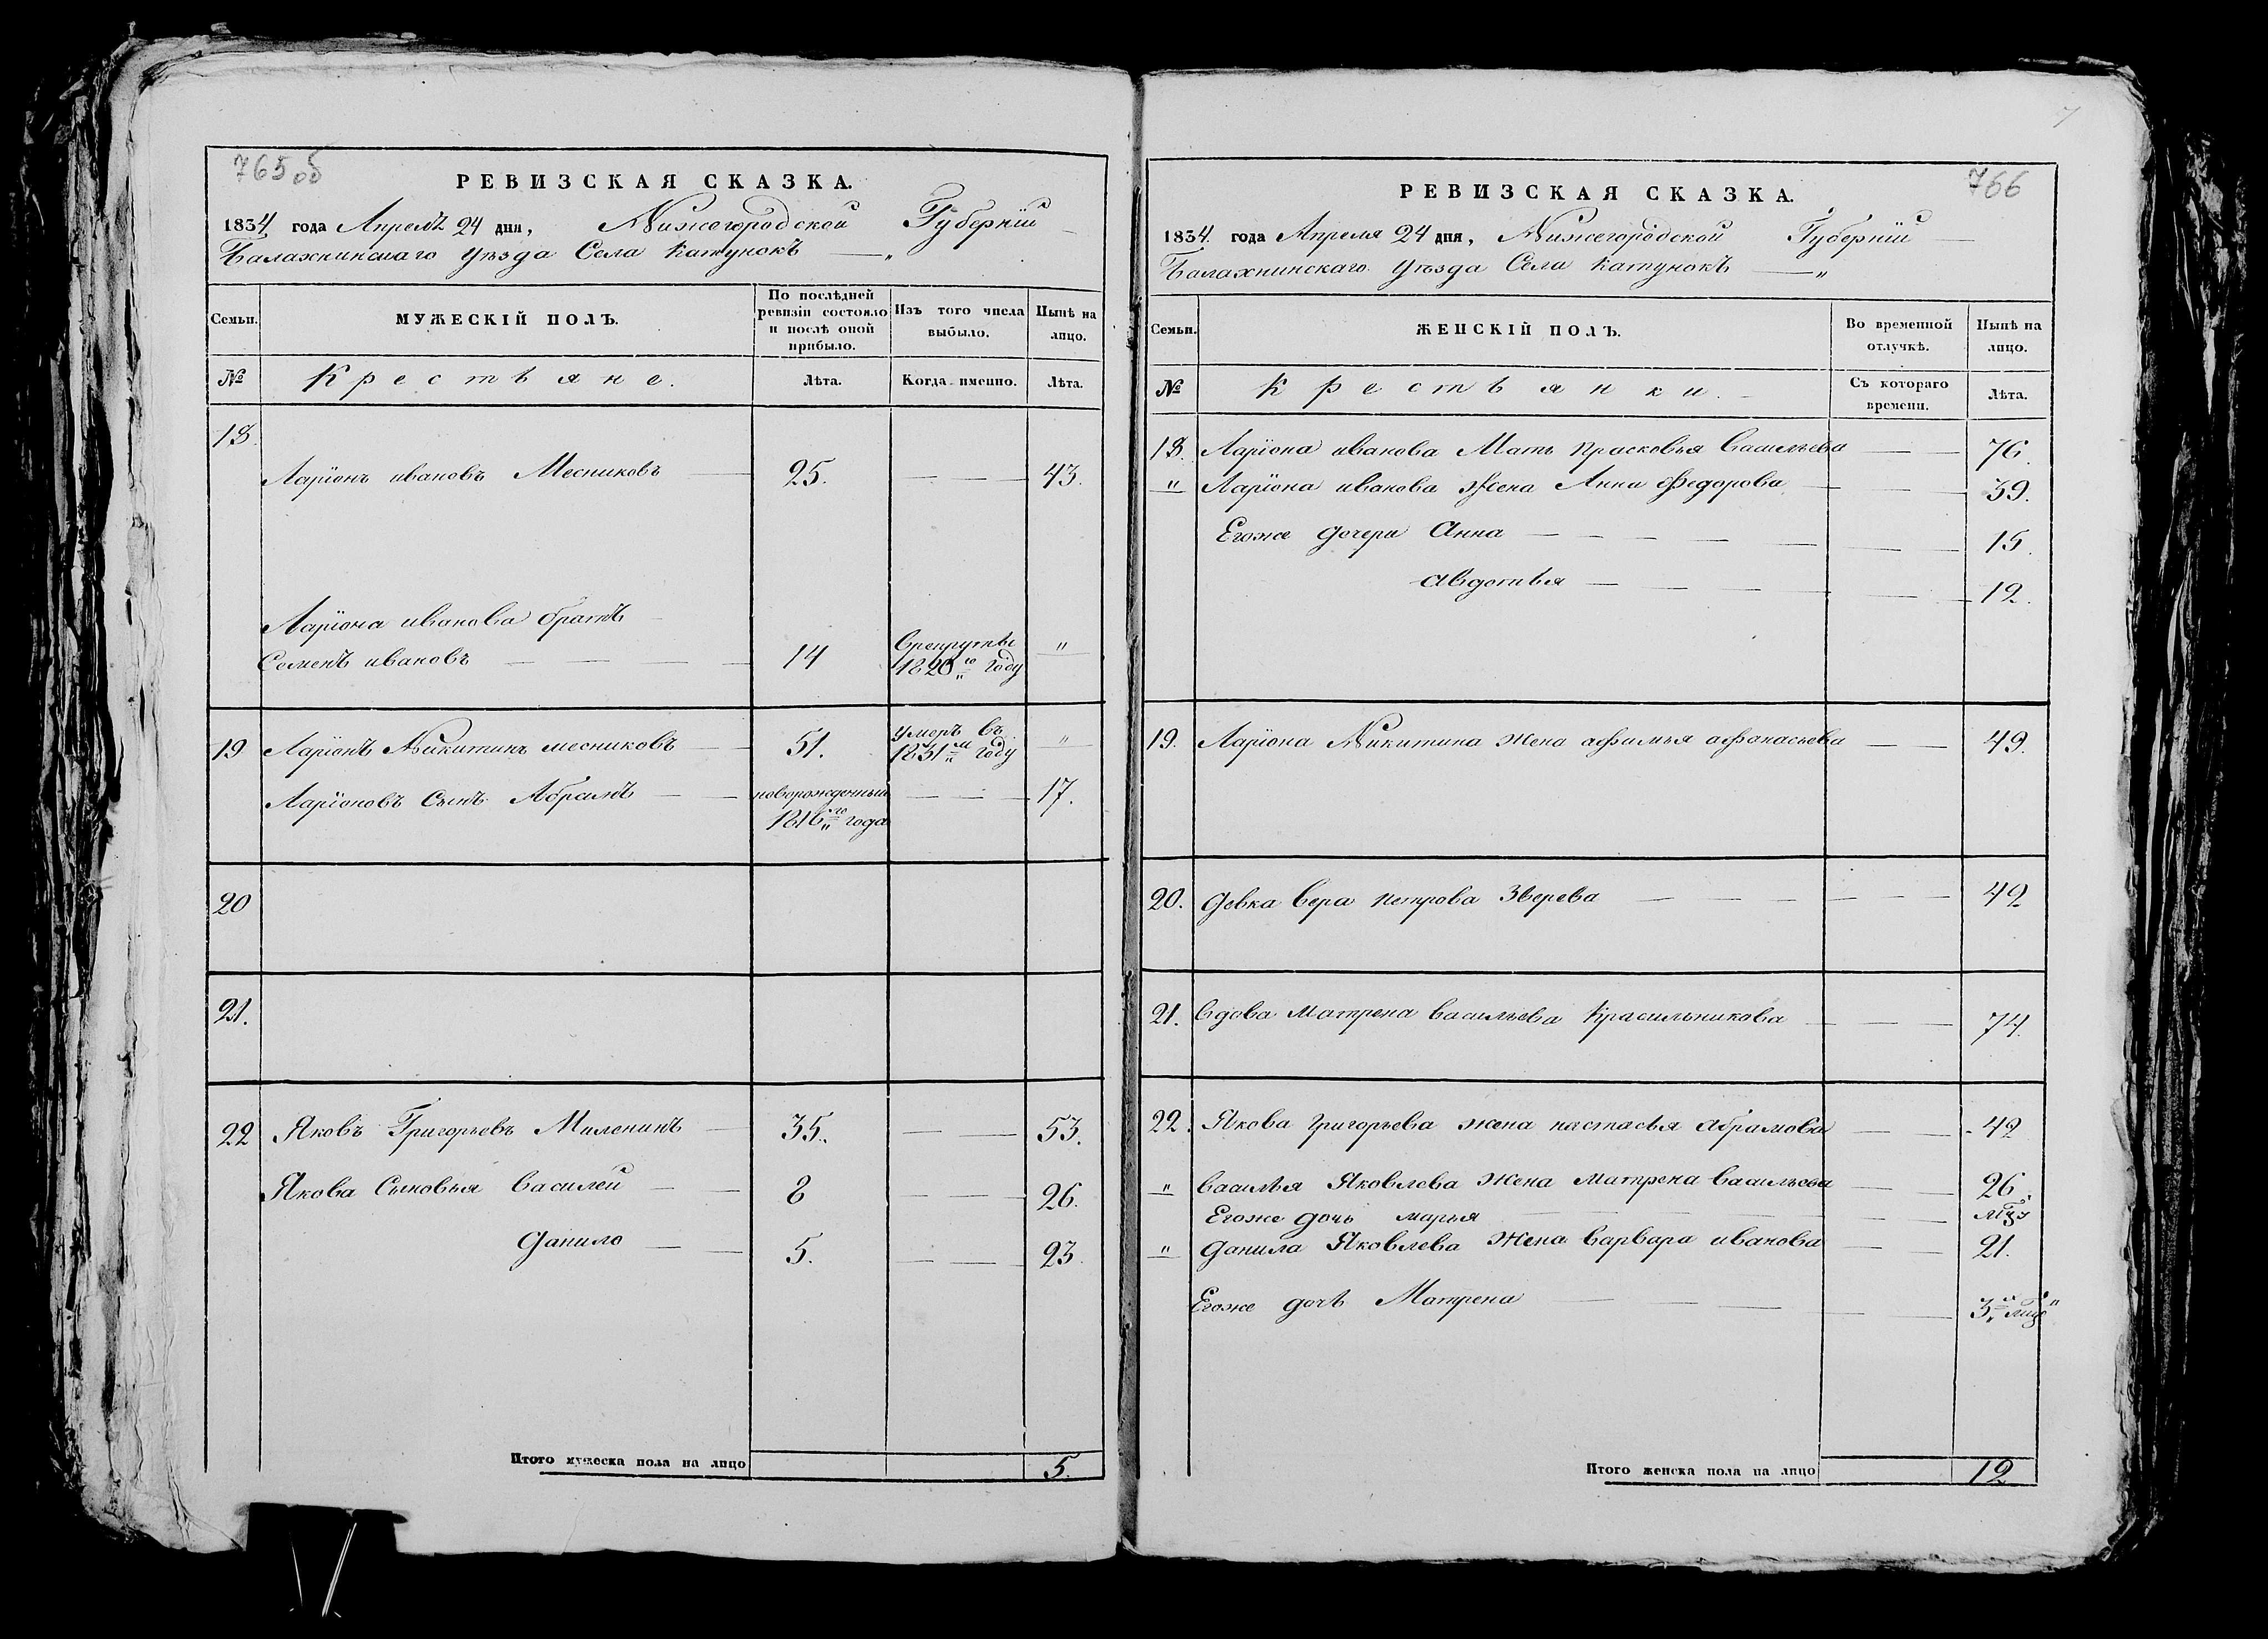 765 об
РЕВИЗСКАЯ СКАЗКА.
1834 года Апрелѣ 24 дня, Нижегородской Губернiи
Балахнинскаго уѣзда Села Катунокъ
Семьи.
МУЖЕСКІЙ ПОЛЪ.
По послѣдней ревизіи состояло и послѣ оной прибыло.
Изъ того числа выбыло.
Нынѣ на лицо.
№
Крестьяне.
Лѣта.
Когда именно.
Лѣта.
18.
Ларiонъ ивановъ Месниковъ 25. 43.
Ларiона иванова братъ
Семенъ ивановъ 14 Врекруты 1820го году "
19 Ларiонъ Никитинъ месниковъ 51. умеръ въ 1831м году "
Ларiоновъ Сынъ Абрамъ новорожденный 1816го года 17.
20
21.
22 Яковъ Григорьевъ Миленинъ 35. 53.
Якова Сыновья Василей 8 26.
Данило 5. 23.
Итого мужеска пола на лицо 5.
7
766
РЕВИЗСКАЯ СКАЗКА.
1834. года Апреля 24 дня, Нижегородской Губернiи
Балахнинскаго Уѣзда Села Катунокъ
Семьи.
ЖЕНСКІЙ ПОЛЪ.
Во временной отлучкѣ.
Нынѣ на лицо.
№
Крестьянки.
Съ котораго времени.
Лѣта.
18. Ларiона иванова Мать прасковья Васильева 76.
" Ларiона иванова Жена Анна Федорова 39.
Егоже дочери Анна 15.
Авдотья 12.
19. Ларiона Никитина жена афимья афонасьева 49.
20. девка Вера петрова Зверева 42
21. Вдова Матрена Васильева Красильникова 74.
22. Якова григорьева жена настасья абрамова 42
" Василья Яковлева жена Матрена Васильева 26.
Егоже дочь марья
" Данила Яковлева Жена Варвара иванова 21.
Егоже дочь Матрена
Итого женска пола на лицо 12